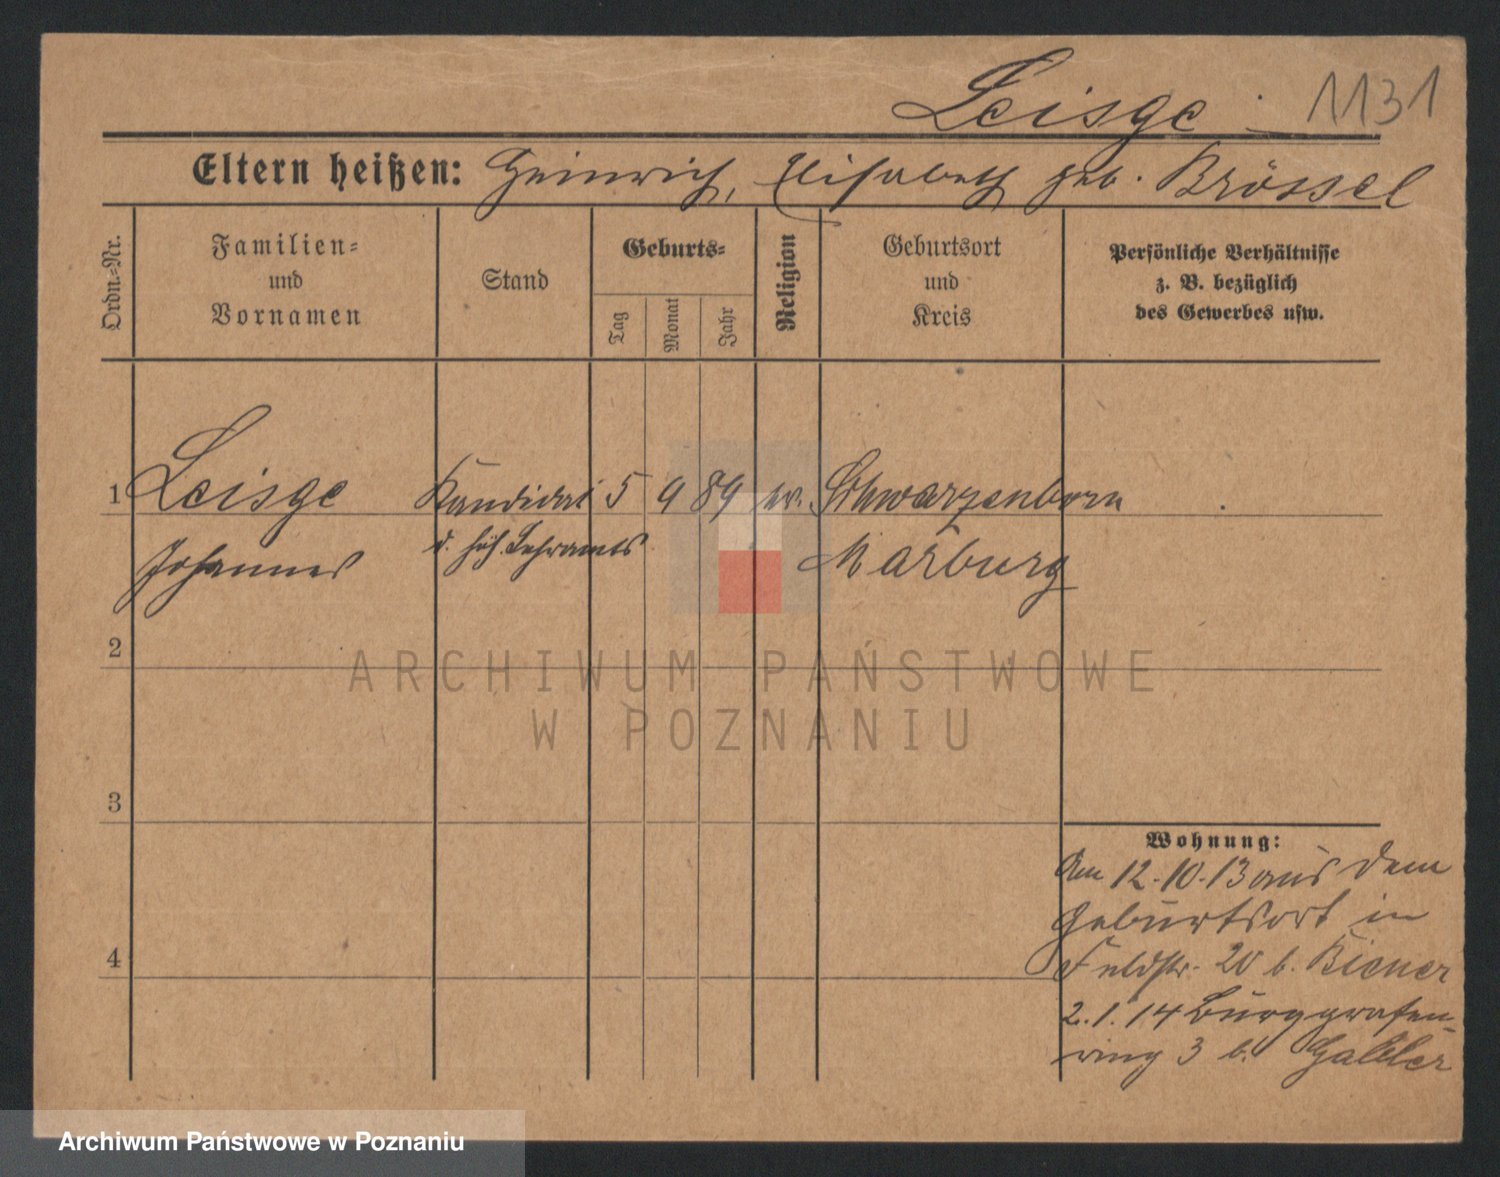 Leisge 1131
Eltern heißen: Heinrich, Elisabeth geb. Brössel
Ordn.-Nr.
Familien-
und
Vornamen
Stand
Geburts-
Tag
Monat
Jahr
Religion
Geburtsort
und
Kreis
Persönliche Verhältnisse
z. B. bezüglich
des Gewerbes usw.
1 Leisge Kandidat 5 9 89 ev. Schwarzenborn
Johannes d. höh. Lehramts Marburg
2
ARCHIWUM PAŃSTWOWE
W POZNANIU
3
Wohnung:
Am 12.10.13 aus dem
Geburtsort in
4 Feldstr. 20 b. Biener
2.1.14 Burggrafen-
ring 3 b. Galler
Archiwum Państwowe w Poznaniu